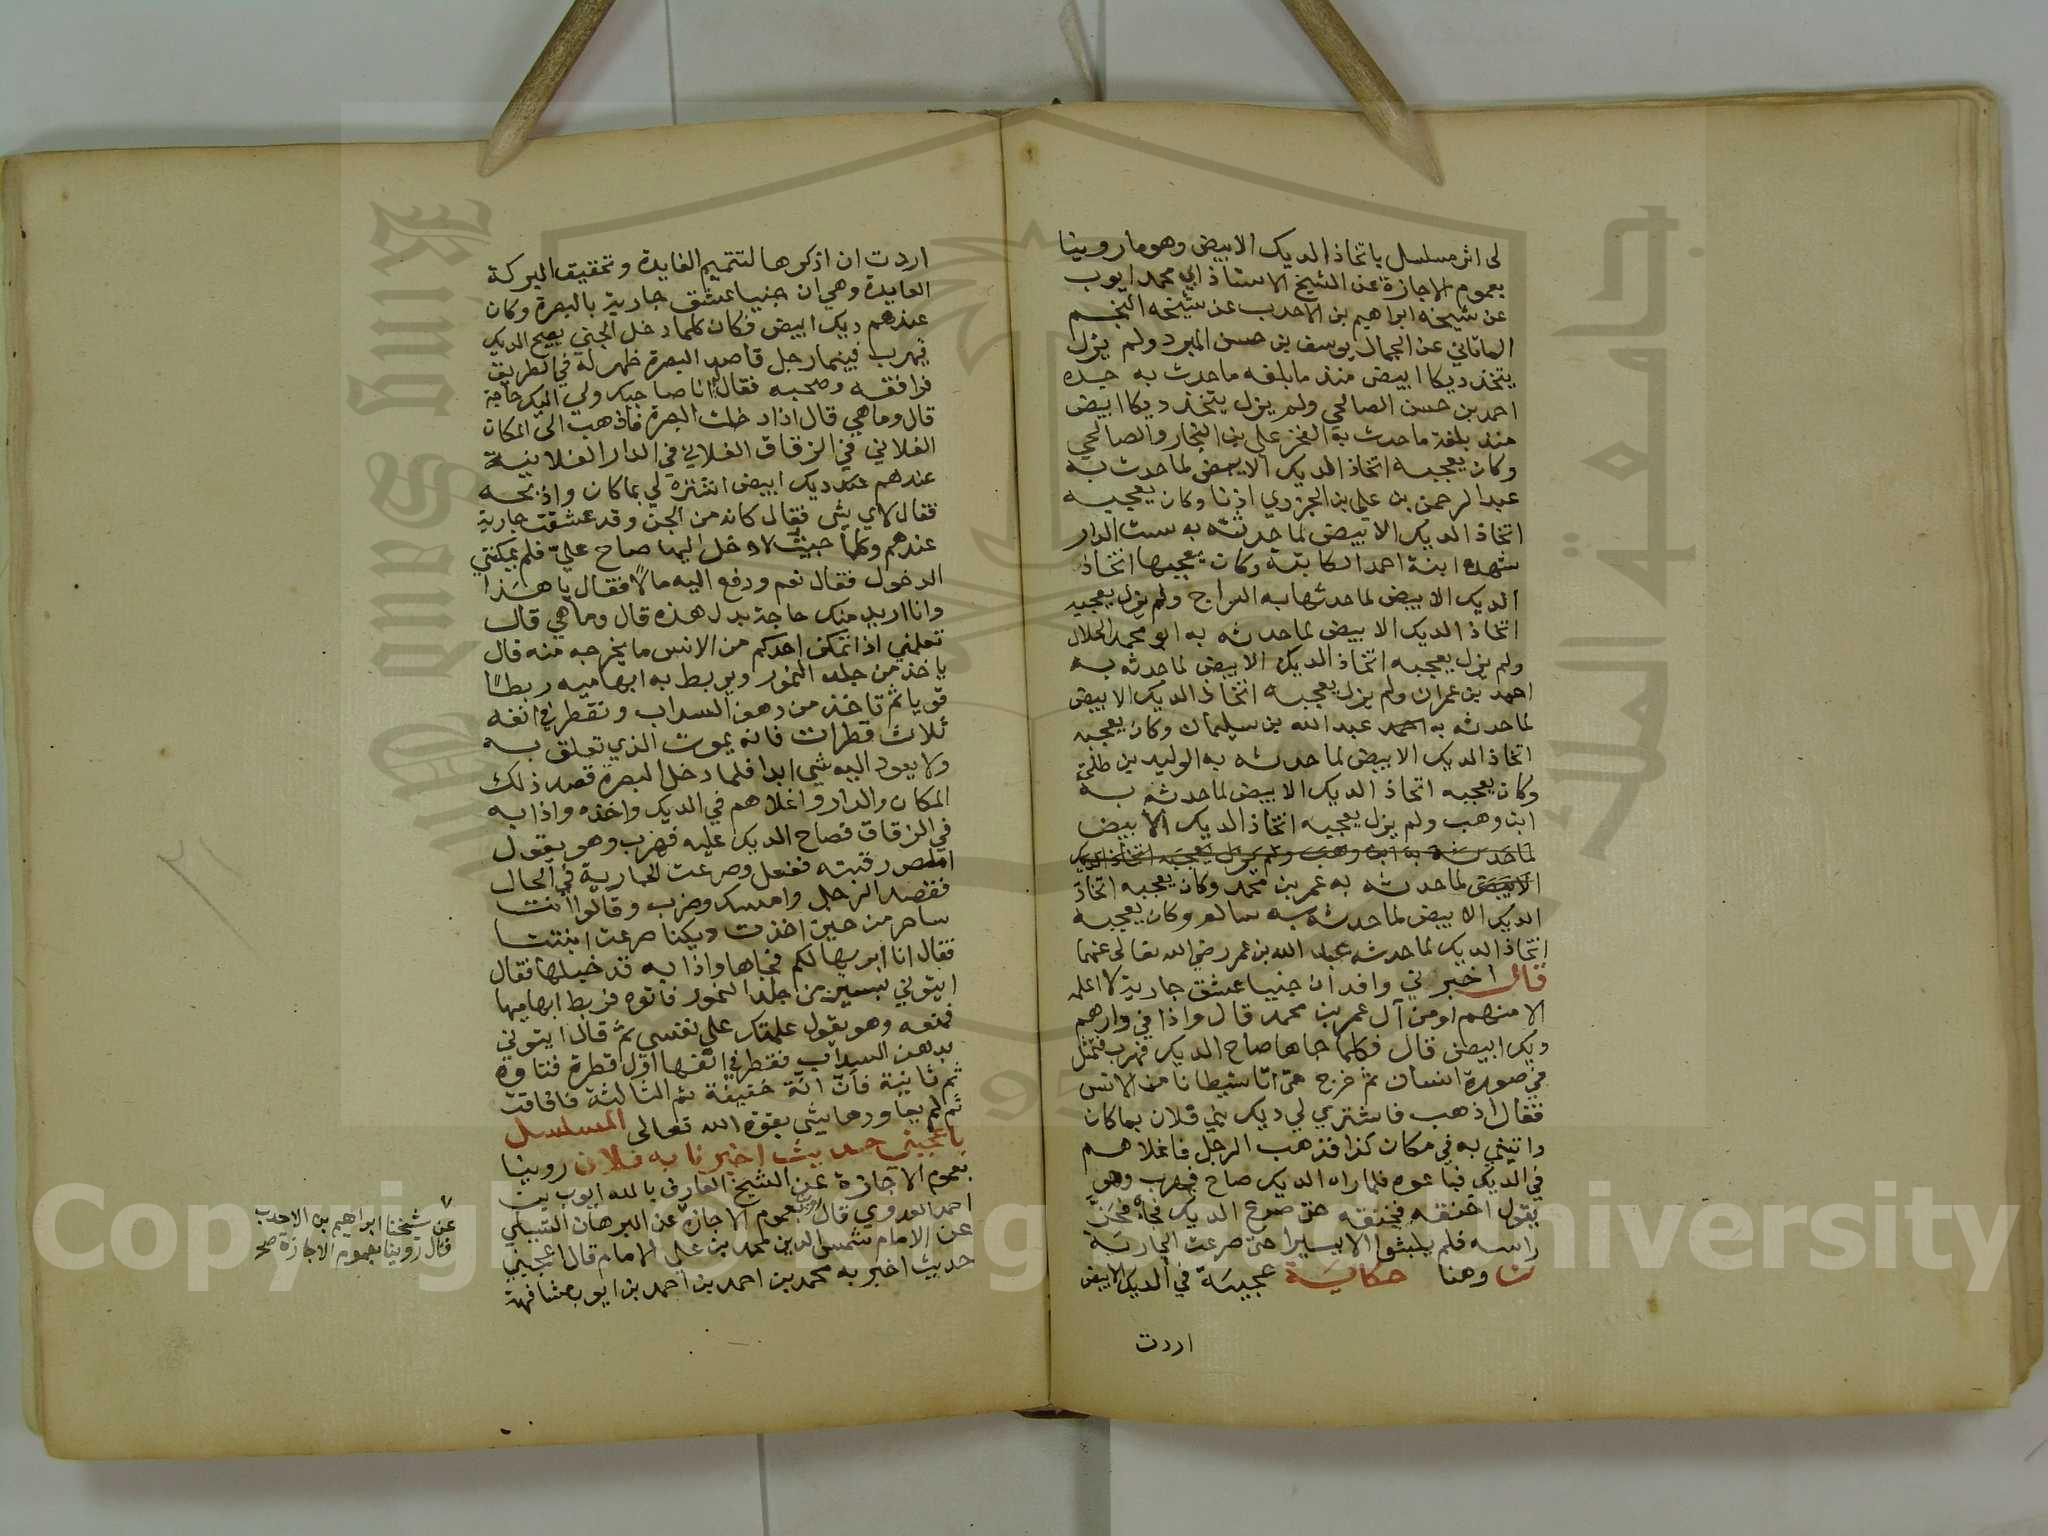 لى اثر مسلسل باتخاذ الديك الابيض وهو ما روينا
بعموم الاجازة عن الشيخ الاستاذ ابي محمد ايوب
عن شيخه ابراهيم بن الاحدب عن شيخه النجم
الماتاني عن الجمال يوسف بن حسن المبرد ولم يزل
يتخذ ديكا ابيض منذ ما بلغه ما حدث به جده
احمد بن حسن الصالحي ولم يزل يتخذ ديكا ابيض
منذ بلغه ما حدث به الفخر علي بن البخار والصالحي
وكان يعجبه اتخاذ الديك الابيض لما حدث به
عبد الرحمن بن علي بن الجزري اذنا وكان يعجبه
اتخاذ الديك الابيض لما حدثته به ست الدار
شهده ابنة احمد الكاتبة وكان يعجبها اتخاذ
الديك الابيض لما حدثها به السراج ولم يزل يعجبه
اتخاذ الديك الابيض لما حدثه به ابو محمد الخلال
ولم يزل يعجبه اتخاذ الديك الابيض لما حدثه به
احمد بن عمران ولم يزل يعجبه اتخاذ الديك الابيض
لما حدثه به احمد عبد الله بن سليمان وكان يعجبه
اتخاذ الديك الابيض لما حدثه به الوليد بن طلحة
وكان يعجبه اتخاذ الديك الابيض لما حدثه به
ابن وهب ولم يزل يعجبه اتخاذ الديك الابيض
لما حدثه به ابن وهب ولم يزل يعجبه اتخاذ الديك
الابيض لما حدثه به عمر بن محمد وكان يعجبه اتخاذ
الديك الابيض لما حدثه به سالم وكان يعجبه
اتخاذ الديك لما حدثه عبد الله بن عمر رضي الله تعالى عنهما
قال اخبرني وافد ان جنيا عشق جارية لا اعلمه
الا منهم او من آل عمر بن محمد قال واذا في دارهم
ديك ابيض قال فكلما جاها صاح الديك فهرب فتمثل
في صورة انسان ثم خرج حتى اتا شيطانا من الانس
فقال اذهب فاشتري لي ديك بني فلان بما كان
واتيني به في مكان كذا فذهب الرجل فاغلاهم
في الديك فباعوه فلما راه الديك صاح فهرب وهو
يقول اخنقه فخنقه حتى صرع الديك فجاءه فحز
راسه فلم يلبثوا الا يسيرا حتى صرعت الجارية
وهنا حكاية عجيبة في الديك الابيض
اردت
اردت ان اذكرها لتتميم الفايدة وتحقيق البركة
العايدة وهي ان جنيا عشق جارية بالبصرة وكان
عندهم ديك ابيض فكان كلما دخل الجني يصيح الديك
فيهرب فبينما رجل قاصد البصرة ظهر له في الطريق
فرافقه وصحبه فقال له انا صاحبك ولي اليك حاجة
قال وما هي قال اذا دخلت البصرة فاذهب الى المكان
الفلاني في الزقاق الفلاني في الدار الفلانية
عندهم ديك ابيض اشتره لي بما كان واذبحه
فقال لاي شي فقال كانه من الجن وقد عشقت جارية
عندهم وكلما جيت لادخل اليها صاح عليّ فلم يمكنني
الدخول فقال نعم ودفع اليه مالا فقال يا هذا
وانا اريد منك حاجة بدل هذه قال وما هي قال
تعلمني اذا تمكن احدكم من الانس ما يخرجه منه قال
ياخذ من جلد النمور ويربط به ابهاميه ربطا
قويا ثم تاخذ من دهن السداب وتقطر في انفه
ثلاث قطرات فانه يموت الذي تعلق به
ولا يعود اليه شي ابدا فلما دخل البصرة قصد ذلك
المكان والدار واغلاهم في الديك واخذه واذا به
في الزقاق فصاح الديك عليه فهرب وهو يقول
املص رقبته ففعل وصرعت الجارية في الحال
فقصد الرجل وامسك وضرب وقالوا انت
ساحر من حين اخذت ديكنا صرعت ابنتنا
فقال انا ابريها لكم فجاها واذا به قد خبلها فقال
ايتوني بسير من جلد النمور فاتوه فربط ابهاميها
فمنعه وهو يقول علمتك على نفسي ثم قال ايتوني
بدهن السداب فقطر في انفها اول قطرة فتاوه
ثم ثانية فان انة خفيفة ثم الثالثة فافاقت
ثم لم يعاودها شي بقوة الله تعالى المسلسل
باعجبني حديث اخبرنا به فلان روينا
بعموم الاجازة عن الشيخ العارف بالله ايوب بن
احمد العدوي قال بعموم الاجازة عن البرهان الشبلي
عن الامام شمس الدين محمد بن علي الامام قال اعجبني
حديث اخبر به محمد بن احمد بن احمد بن ايوب مشافهة
عن شيخنا ابراهيم بن الاحدب
قال روينا بعموم الاجازة صح
Copyright © King Saud University
King Saud University
جامعة الملك سعود
1957